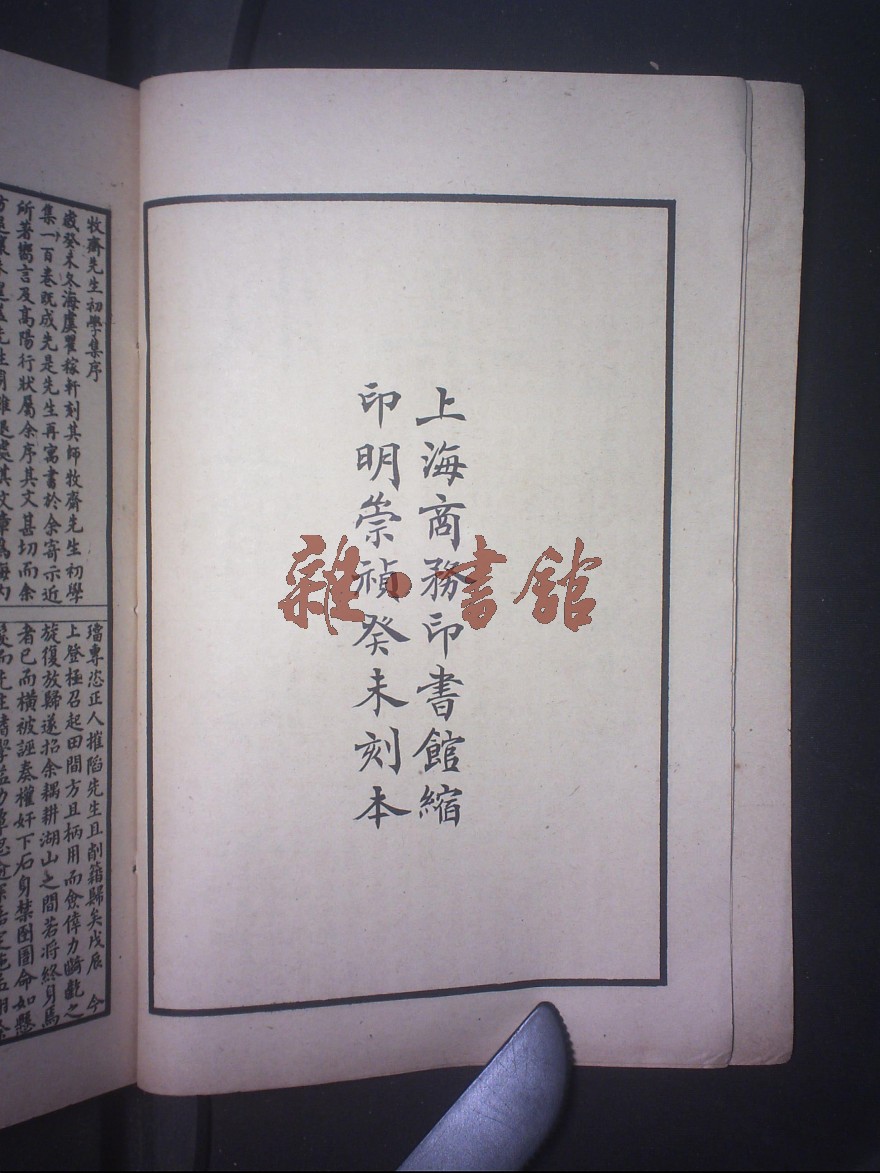 上海商務印書館縮
印明崇禎癸未刻本
雜·書館
牧齋先生初學集序
歲癸未冬海虞瞿稼軒刻其師牧齋先生初學
集一百卷既成先是先生再寓書於余寄示近
所著嚮言及高陽行狀屬余序其文甚切而余
璫專恣正人摧陷先生且削籍歸矣戊辰 今
上登極召起田間方且柄用而僉偉力齮齕之
旋復放歸遂招余耦耕湖山之間若將終身焉
者已而橫被誣奏權奸下石身禁囹圄命如懸